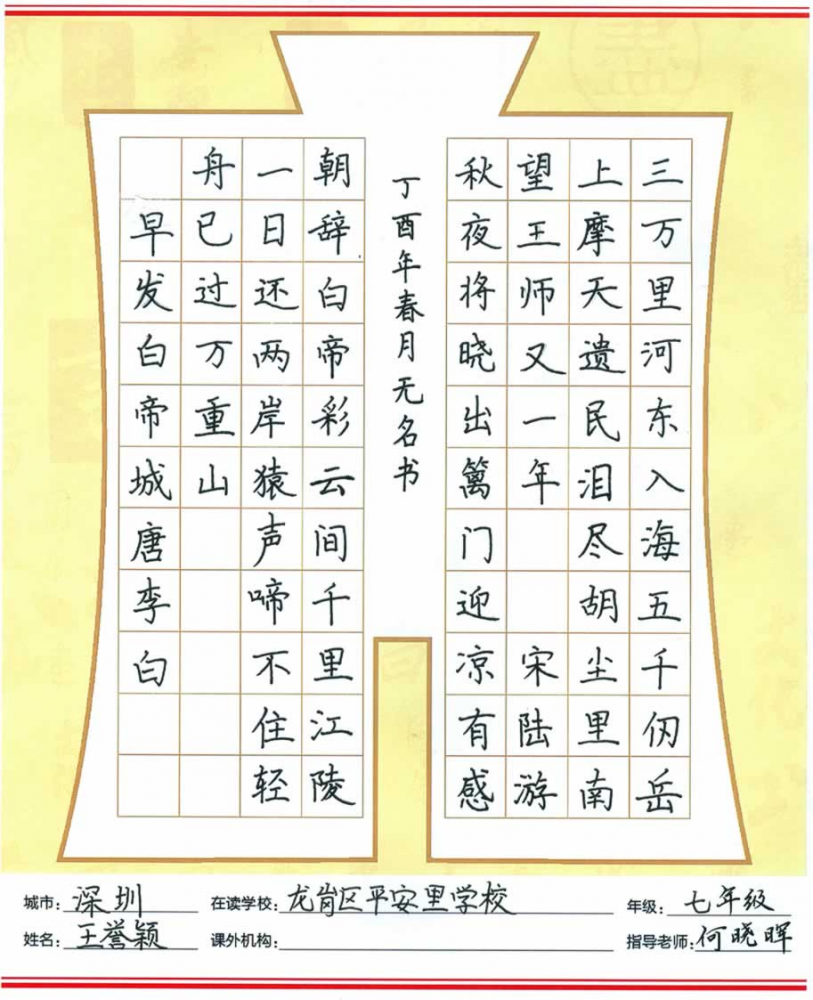 三万里河东入海五千仞岳
上摩天遗民泪尽胡尘里南
望王师又一年宋陆游
秋夜将晓出篱门迎凉有感
丁酉年春月无名书
朝辞白帝彩云间千里江陵
一日还两岸猿声啼不住轻
舟已过万重山
早发白帝城唐李白
城市：深圳 在读学校：龙岗区平安里学校 年级：七年级
姓名：王誉颖 课外机构： 指导老师：何晓晖